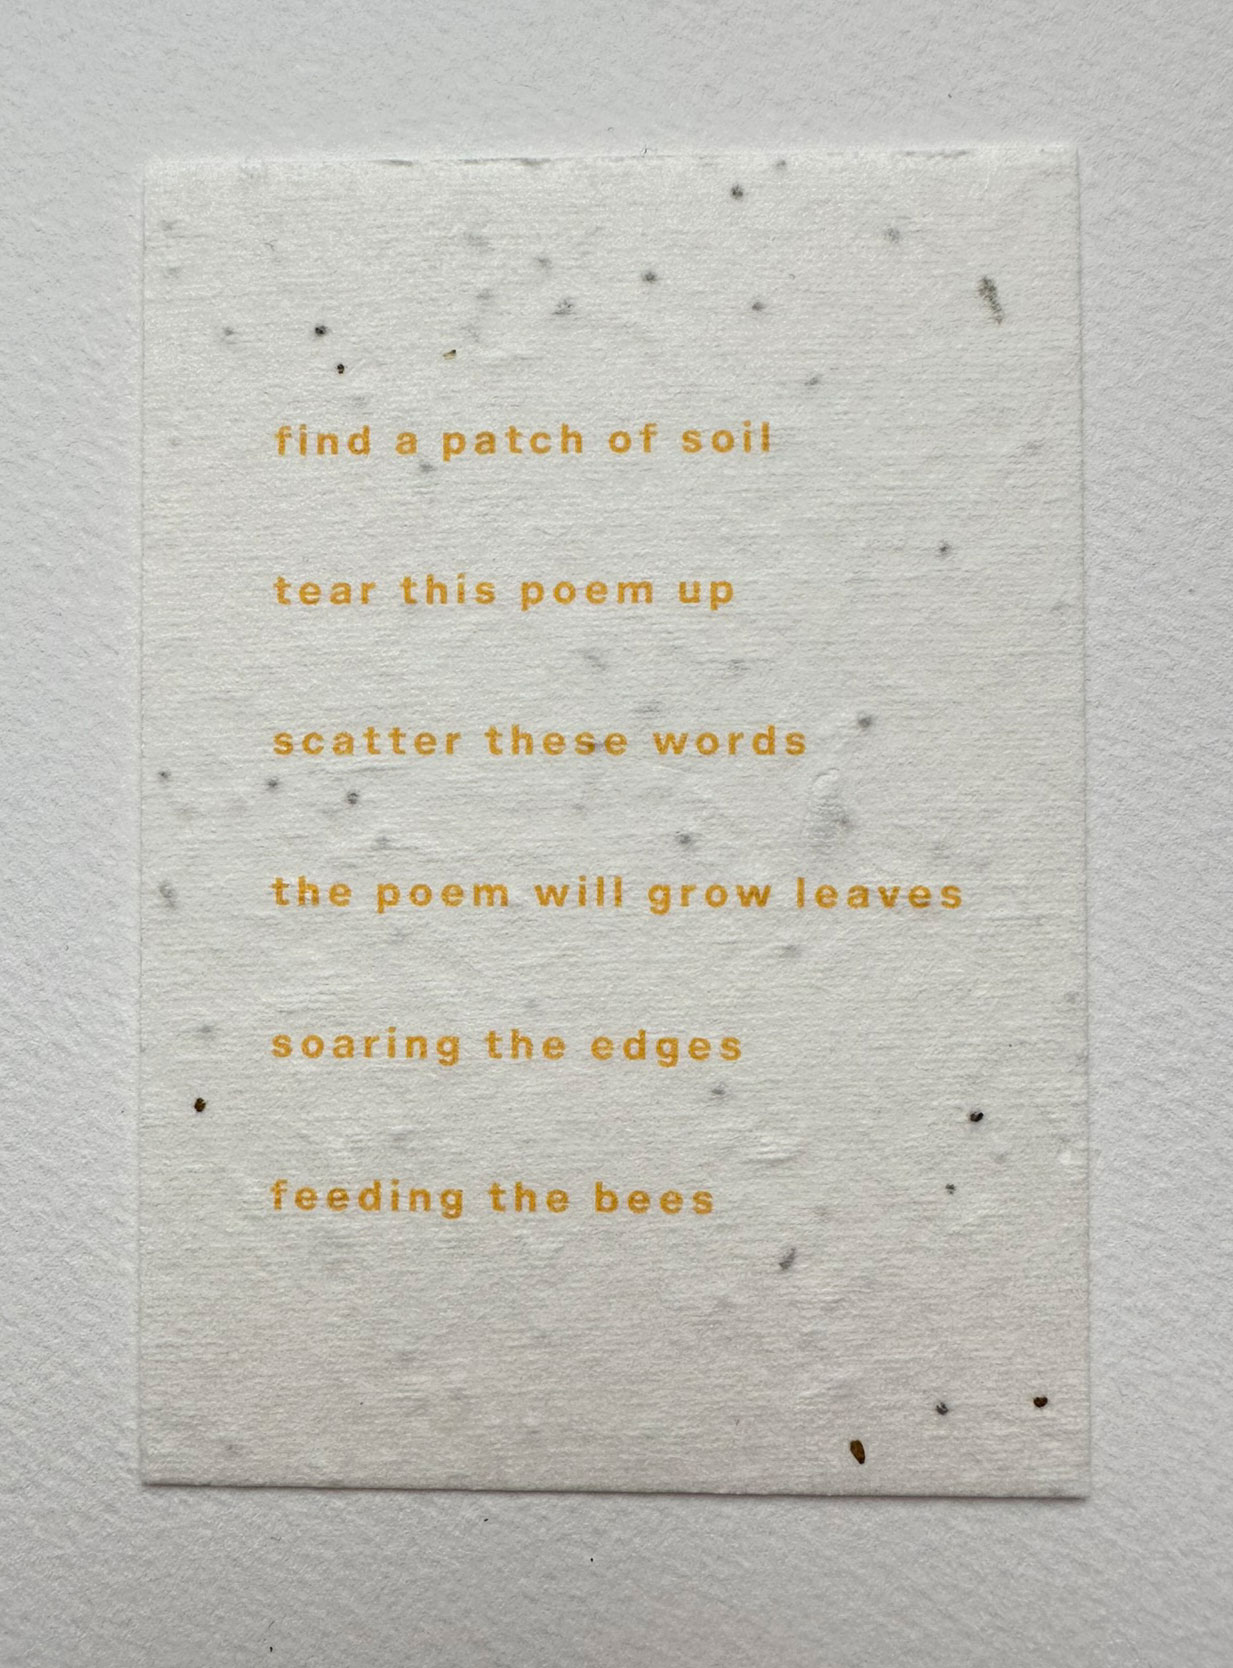 find a patch of soil
tear this poem up
scatter these words
the poem will grow leaves
soaring the edges
feeding the bees